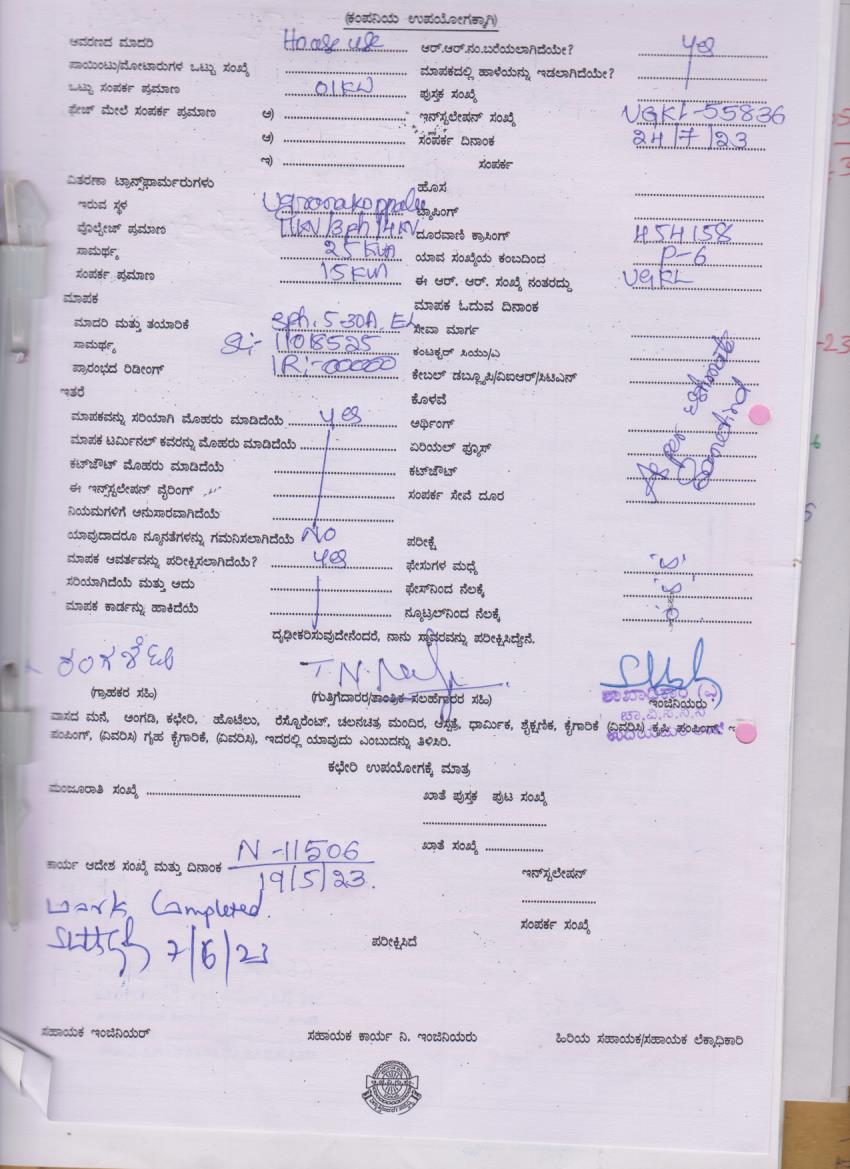 (ಕಂಪನಿಯ ಉಪಯೋಗಕ್ಕಾಗಿ)
ಆವರಣದ ಮಾದರಿ House use ಆರ್.ಆರ್.ನಂ.ಬರೆಯಲಾಗಿದೆಯೇ? yes
ಪಾಯಿಂಟು/ಮೋಟಾರುಗಳ ಒಟ್ಟು ಸಂಖ್ಯೆ ಮಾಪಕದಲ್ಲಿ ಹಾಳೆಯನ್ನು ಇಡಲಾಗಿದೆಯೇ?
ಒಟ್ಟು ಸಂಪರ್ಕ ಪ್ರಮಾಣ 01KW ಪುಸ್ತಕ ಸಂಖ್ಯೆ
ಫೇಜ್ ಮೇಲೆ ಸಂಪರ್ಕ ಪ್ರಮಾಣ ಅ) ಇನ್‌ಸ್ಟಲೇಷನ್ ಸಂಖ್ಯೆ UGKL-55836
ಆ) ಸಂಪರ್ಕ ದಿನಾಂಕ 24/7/23
ಇ) ಸಂಪರ್ಕ
ವಿತರಣಾ ಟ್ರಾನ್ಸ್‌ಫಾರ್ಮರುಗಳು ಹೊಸ
ಇರುವ ಸ್ಥಳ ಟ್ಯಾಪಿಂಗ್
ವೊಲ್ಟೇಜ್ ಪ್ರಮಾಣ 11KV/3ph/4KV ದೂರವಾಣಿ ಕ್ರಾಸಿಂಗ್ 454158
ಸಾಮರ್ಥ್ಯ 25KVA ಯಾವ ಸಂಖ್ಯೆಯ ಕಂಬದಿಂದ P-6
ಸಂಪರ್ಕ ಪ್ರಮಾಣ 15KVA ಈ ಆರ್. ಆರ್. ಸಂಖ್ಯೆ ನಂತರದ್ದು UGKL
ಮಾಪಕ ಮಾಪಕ ಓದುವ ದಿನಾಂಕ
ಮಾದರಿ ಮತ್ತು ತಯಾರಿಕೆ ಸೇವಾ ಮಾರ್ಗ
ಸಾಮರ್ಥ್ಯ Sl:- 11018525 ಕಂಟಕ್ಟರ್ ಸಿಯು/ಎ
ಪ್ರಾರಂಭದ ರಿಡೀಂಗ್ IR:-00000 ಕೇಬಲ್ ಡಬ್ಲ್ಯೂಪಿ/ವಿಐಆರ್/ಸಿಟಿಎಸ್
ಇತರೆ ಕೊಳವೆ
ಮಾಪಕವನ್ನು ಸರಿಯಾಗಿ ಮೊಹರು ಮಾಡಿದೆಯೆ yes ಅರ್ಥಿಂಗ್
ಮಾಪಕ ಟರ್ಮಿನಲ್ ಕವರನ್ನು ಮೊಹರು ಮಾಡಿದೆಯೆ ಏರಿಯಲ್ ಫ್ಯೂಸ್
ಕಟ್‌ಔಟ್ ಮೊಹರು ಮಾಡಿದೆಯೆ ಕಟ್‌ಔಟ್
ಈ ಇನ್ಸ್‌ಸ್ಟಲೇಷನ್ ವೈರಿಂಗ್ ಸಂಪರ್ಕ ಸೇವೆ ದೂರ
ನಿಯಮಗಳಿಗೆ ಅನುಸಾರವಾಗಿದೆಯೆ
ಯಾವುದಾದರೂ ನ್ಯೂನತೆಗಳನ್ನು ಗಮನಿಸಲಾಗಿದೆಯೆ NO ಪರೀಕ್ಷೆ
ಮಾಪಕ ಆವರ್ತವನ್ನು ಪರೀಕ್ಷಿಸಲಾಗಿದೆಯೆ? yes ಫೇಸುಗಳ ಮಧ್ಯೆ
ಸರಿಯಾಗಿದೆಯೆ ಮತ್ತು ಅದು ಫೇಸ್‌ನಿಂದ ನೆಲಕ್ಕೆ
ಮಾಪಕ ಕಾರ್ಡನ್ನು ಹಾಕಿದೆಯೆ ನ್ಯೂಟ್ರಲ್‌ನಿಂದ ನೆಲಕ್ಕೆ
ದೃಢೀಕರಿಸುವುದೇನೆಂದರೆ, ನಾನು ಸ್ಥಾವರವನ್ನು ಪರೀಕ್ಷಿಸಿದ್ದೇನೆ.
(ಗ್ರಾಹಕರ ಸಹಿ) (ಗುತ್ತಿಗೆದಾರರ/ತಾಂತ್ರಿಕ ಸಲಹೆಗಾರರ ಸಹಿ) ಇಂಜಿನಿಯರು
ವಾಸದ ಮನೆ, ಅಂಗಡಿ, ಕಛೇರಿ, ಹೊಟೇಲು, ರೆಸ್ಟೊರೆಂಟ್, ಚಲನಚಿತ್ರ ಮಂದಿರ, ಆಸ್ಪತ್ರೆ, ಧಾರ್ಮಿಕ, ಶೈಕ್ಷಣಿಕ, ಕೈಗಾರಿಕೆ (ವಿವರಿಸಿ) ಕೃಷಿ ಪಂಪಿಂಗ್,
ಪಂಪಿಂಗ್, (ವಿವರಿಸಿ) ಗೃಹ ಕೈಗಾರಿಕೆ, (ವಿವರಿಸಿ), ಇದರಲ್ಲಿ ಯಾವುದು ಎಂಬುದನ್ನು ತಿಳಿಸಿರಿ.
ಕಛೇರಿ ಉಪಯೋಗಕ್ಕೆ ಮಾತ್ರ
ಮಂಜೂರಾತಿ ಸಂಖ್ಯೆ ಖಾತೆ ಪುಸ್ತಕ ಪುಟ ಸಂಖ್ಯೆ
ಖಾತೆ ಸಂಖ್ಯೆ
ಕಾರ್ಯ ಆದೇಶ ಸಂಖ್ಯೆ ಮತ್ತು ದಿನಾಂಕ N-11506
19/5/23.
ಇನ್‌ಸ್ಟಲೇಷನ್
work Completed.
ಸಂಪರ್ಕ ಸಂಖ್ಯೆ
7/6/23 ಪರೀಕ್ಷಿಸಿದೆ
ಸಹಾಯಕ ಇಂಜಿನಿಯರ್ ಸಹಾಯಕ ಕಾರ್ಯ ನಿ. ಇಂಜಿನಿಯರು ಹಿರಿಯ ಸಹಾಯಕ/ಸಹಾಯಕ ಲೆಕ್ಕಾಧಿಕಾರಿ